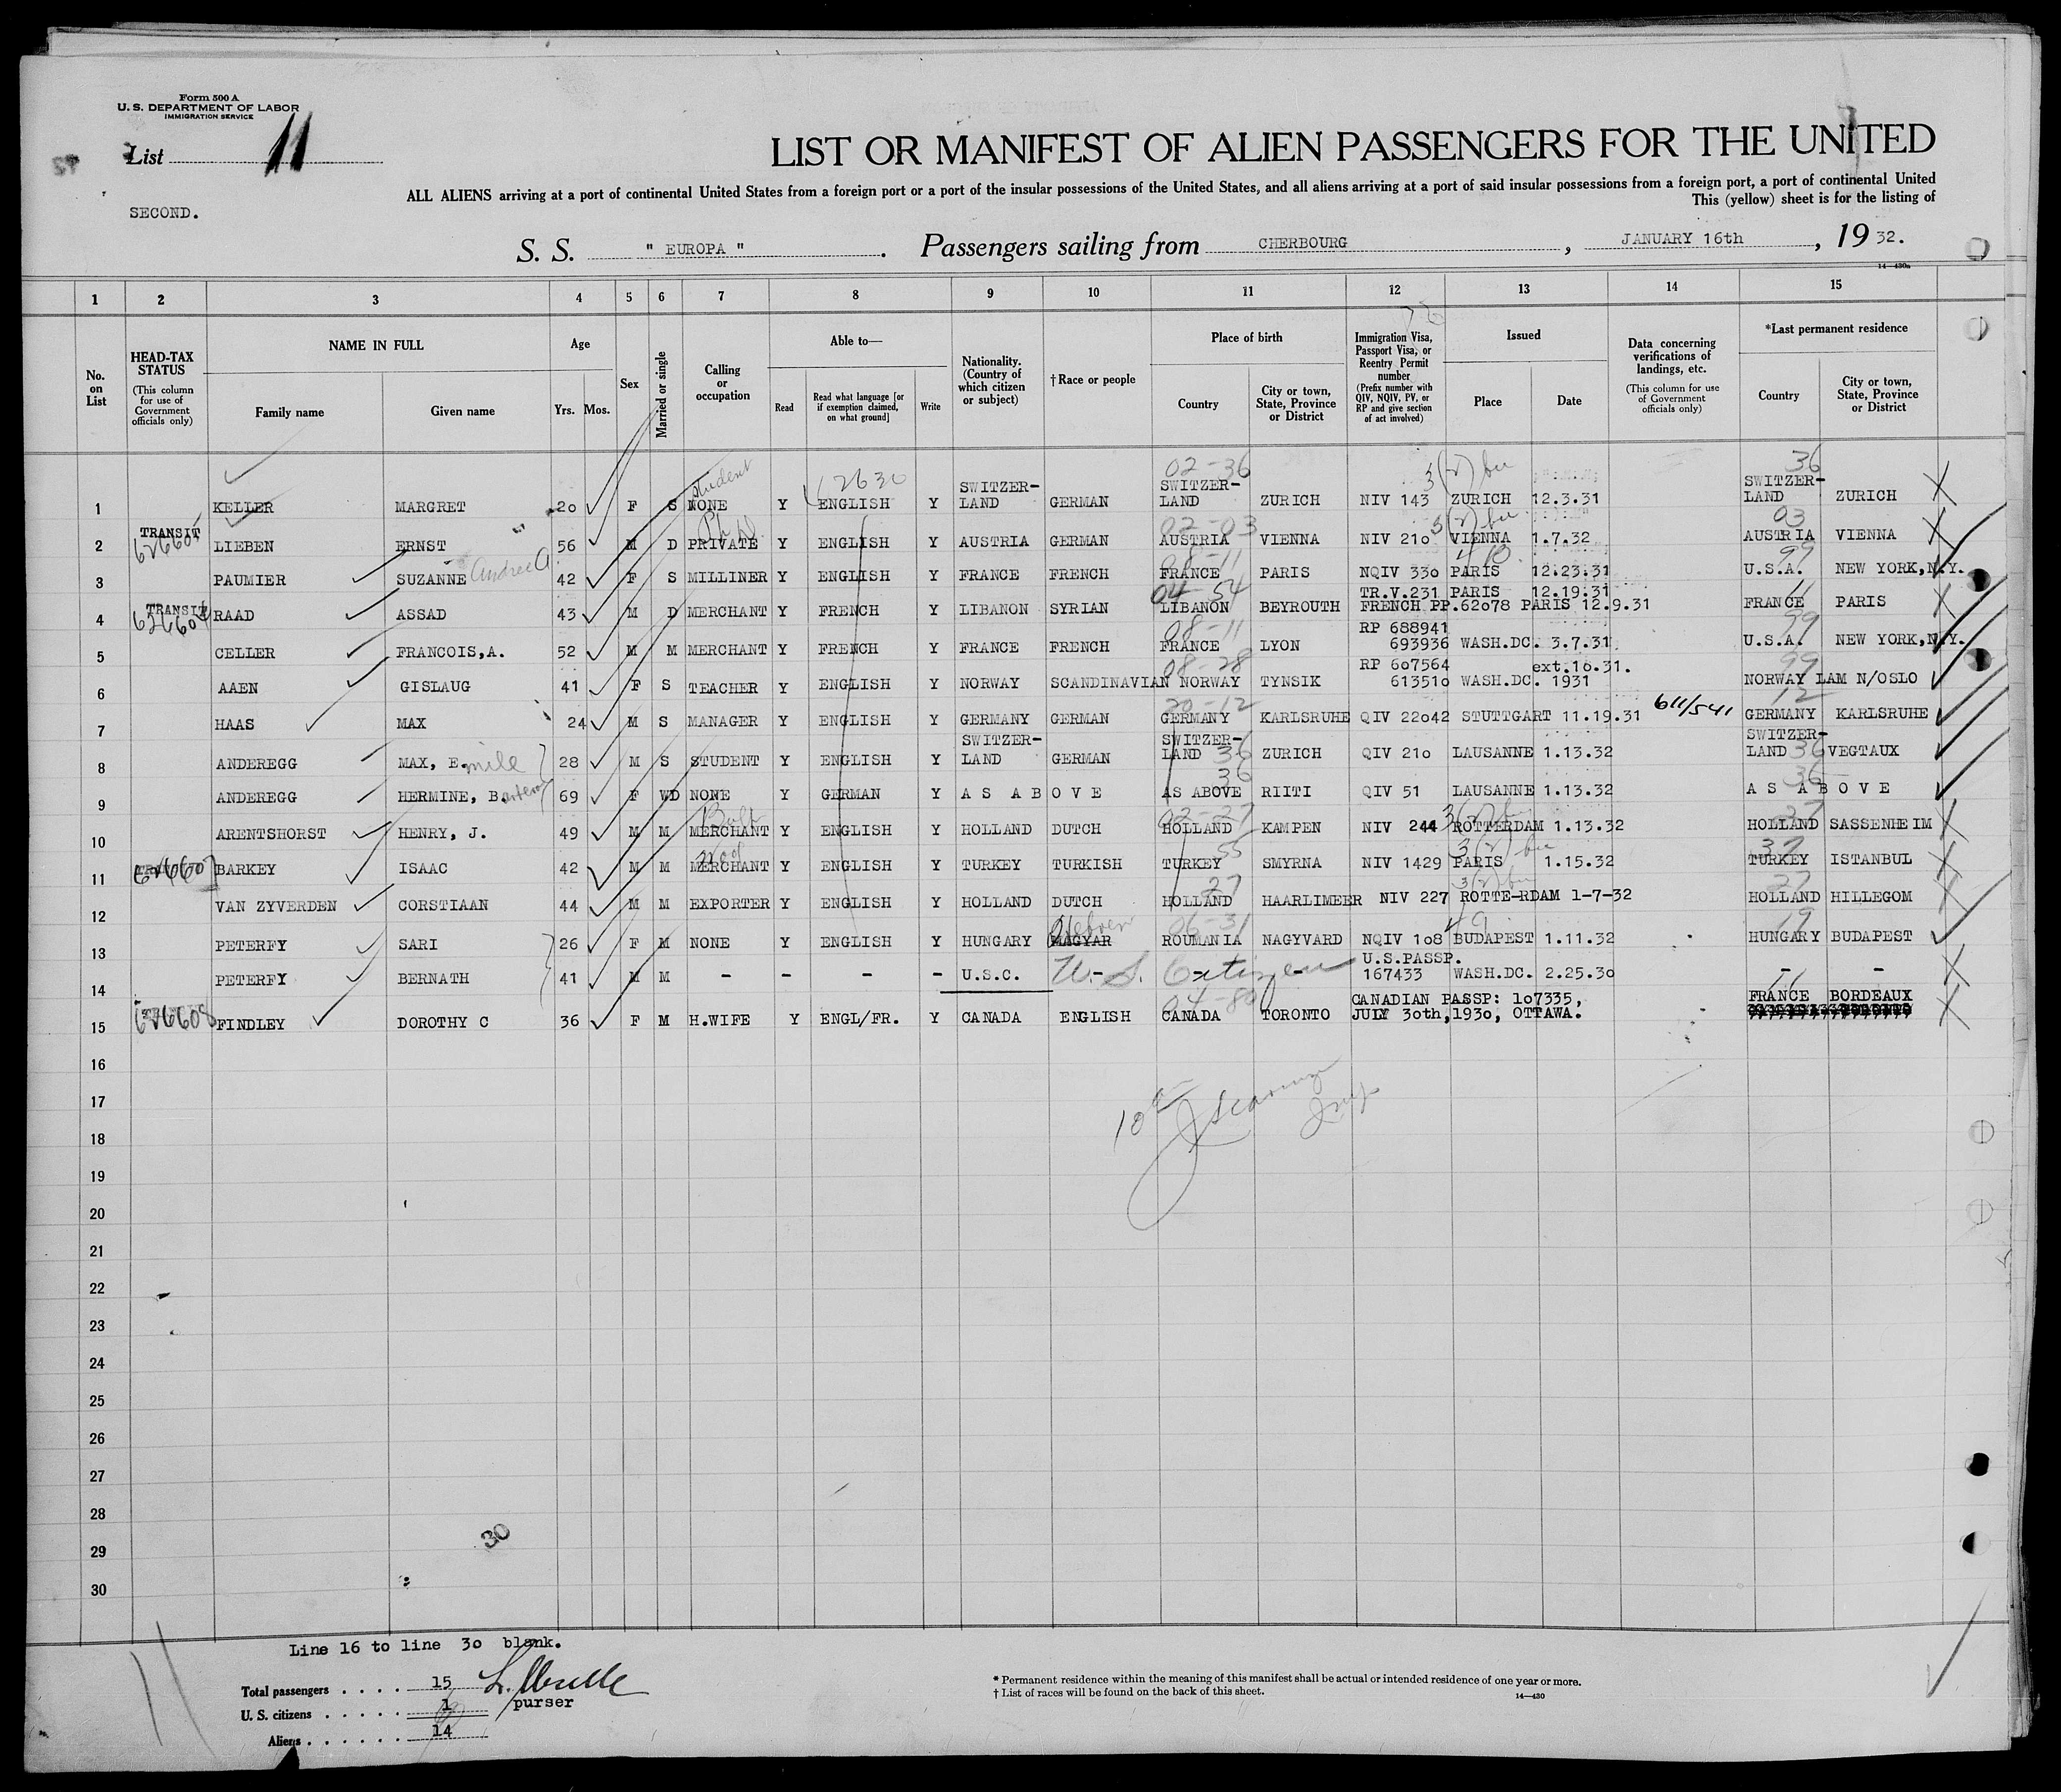 Form 500 A
U. S. DEPARTMENT OF LABOR
IMMIGRATION SERVICE
List 11
LIST OR MANIFEST OF ALIEN PASSENGERS FOR THE UNITED
ALL ALIENS arriving at a port of continental United States from a foreign port or a port of the insular possessions of the United States, and all aliens arriving at a port of said insular possessions from a foreign port, a port of continental United
This (yellow) sheet is for the listing of
SECOND.
S. S. " EUROPA " . Passengers sailing from CHERBOURG , JANUARY 16th , 19 32.
14—430a
1 2 3 4 5 6 7 8 9 10 11 12 13 14 15
No. on List
HEAD-TAX STATUS
(This column for use of Government officials only)
NAME IN FULL
Family name Given name
Age
Yrs. Mos.
Sex
Married or single
Calling or occupation
Able to—
Read
Read what language [or if exemption claimed, on what ground]
Write
Nationality. (Country of which citizen or subject)
†Race or people
Place of birth
Country
City or town, State, Province or District
Immigration Visa, Passport Visa, or Reentry Permit number
(Prefix number with QIV, NQIV, PV, or RP and give section of act involved)
Issued
Place Date
Data concerning verifications of landings, etc.
(This column for use of Government officials only)
*Last permanent residence
Country
City or town, State, Province or District
02-36 36
student 2630 3(2)
1 KELLER MARGRET 20 F S NONE Y ENGLISH Y SWITZER-LAND GERMAN SWITZER-LAND ZURICH NIV 143 ZURICH 12.3.31 SWITZER-LAND ZURICH
Ph D. 02-03 3(2) 03
2 TRANSIT LIEBEN ERNST 56 M D PRIVATE Y ENGLISH Y AUSTRIA GERMAN AUSTRIA VIENNA NIV 210 VIENNA 1.7.32 AUSTRIA VIENNA
08-11 99
3 PAUMIER SUZANNE 42 F S MILLINER Y ENGLISH Y FRANCE FRENCH FRANCE PARIS NQIV 330 PARIS 12.23.31 U.S.A. NEW YORK,N.Y.
04-54 TR.V.231 PARIS 12.19.31
4 TRANSIT RAAD ASSAD 43 M D MERCHANT Y FRENCH Y LIBANON SYRIAN LIBANON BEYROUTH FRENCH PP.62078 PARIS 12.9.31 FRANCE PARIS
08-11 RP 688941 99
5 CELLER FRANCOIS,A. 52 M M MERCHANT Y FRENCH Y FRANCE FRENCH FRANCE LYON 693936 WASH.DC. 3.7.31. U.S.A. NEW YORK,N.Y.
08-28 RP 607564 ext.10.31. 99
6 AAEN GISLAUG 41 F S TEACHER Y ENGLISH Y NORWAY SCANDINAVIAN NORWAY TYNSIK 613510 WASH.DC. 1931 NORWAY LAM N/OSLO
20-12 12
7 HAAS MAX 24 M S MANAGER Y ENGLISH Y GERMANY GERMAN GERMANY KARLSRUHE QIV 22042 STUTTGART 11.19.31 611/541 GERMANY KARLSRUHE
8 ANDEREGG MAX, Emile 28 M S STUDENT Y ENGLISH Y SWITZER-LAND GERMAN SWITZER-LAND 36 ZURICH QIV 210 LAUSANNE 1.13.32 SWITZER-LAND 36 VEGTAUX
36 36
9 ANDEREGG HERMINE, B. 69 F WD NONE Y GERMAN Y AS ABOVE AS ABOVE RIITI QIV 51 LAUSANNE 1.13.32 AS ABOVE
Bulb 02-27 3(2) 27
10 ARENTSHORST HENRY, J. 49 M M MERCHANT Y ENGLISH Y HOLLAND DUTCH HOLLAND KAMPEN NIV 244 ROTTERDAM 1.13.32 HOLLAND SASSENHEIM
55 3(2) 37
11 626607 BARKEY ISAAC 42 M M MERCHANT Y ENGLISH Y TURKEY TURKISH TURKEY SMYRNA NIV 1429 PARIS 1.15.32 TURKEY ISTANBUL
27 3(2) 27
12 VAN ZYVERDEN CORSTIAAN 44 M M EXPORTER Y ENGLISH Y HOLLAND DUTCH HOLLAND HAARLIMEER NIV 227 ROTTE-RDAM 1-7-32 HOLLAND HILLEGOM
Hebrew 06-31 19
13 PETERFY SARI 26 F M NONE Y ENGLISH Y HUNGARY MAGYAR ROUMANIA NAGYVARD NQIV 108 BUDAPEST 1.11.32 HUNGARY BUDAPEST
U.S.PASSP.
14 PETERFY BERNATH 41 M M - - - - U.S.C. U.S. Citizen 167433 WASH.DC. 2.25.30 - -
04-80 CANADIAN PASSP: 107335, FRANCE BORDEAUX
15 626608 FINDLEY DOROTHY C 36 F M H.WIFE Y ENGL/FR. Y CANADA ENGLISH CANADA TORONTO JULY 30th,1930, OTTAWA.
16
17
18
19
20
21
22
23
24
25
26
27
28
29
30
30
Line 16 to line 30 blank.
Total passengers . . . . 15
U. S. citizens . . . . . 1
purser
Aliens . . . . . . 14
* Permanent residence within the meaning of this manifest shall be actual or intended residence of one year or more.
† List of races will be found on the back of this sheet.
14—430